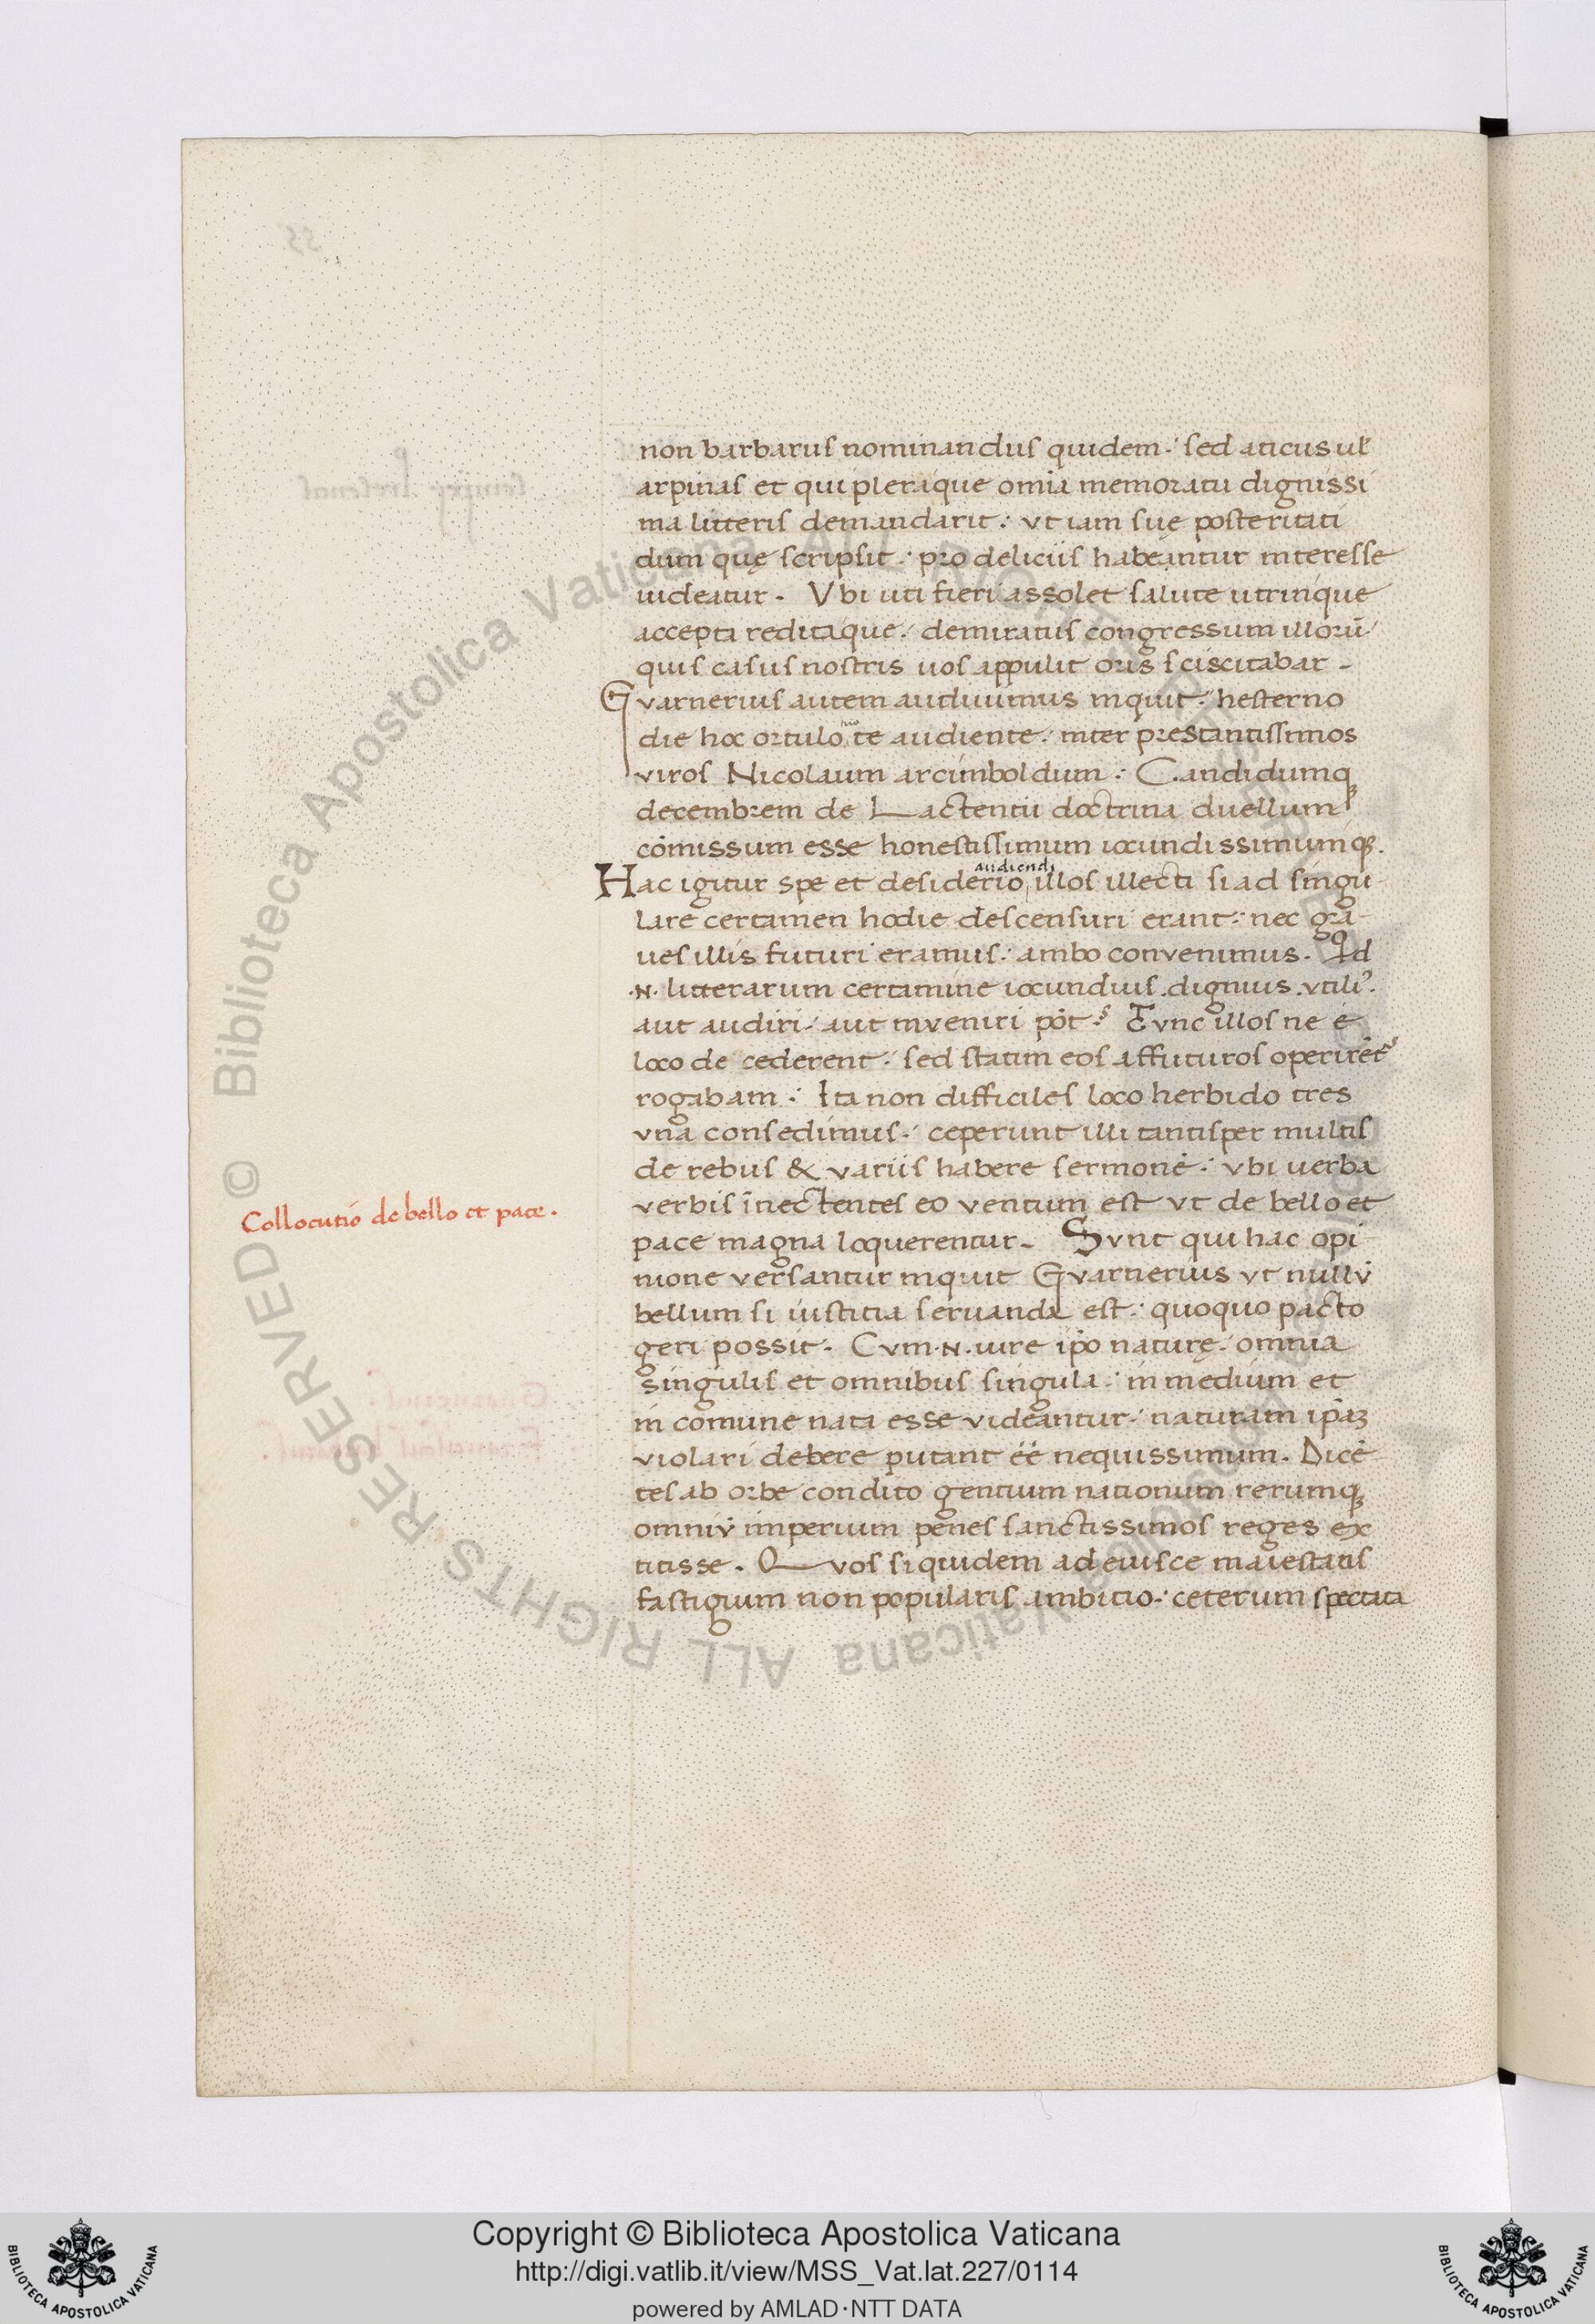 non barbarus nominandus quidem. sed aticus ul̃
arpinas et qui pleraque om̃ia memoratu dignissi
ma litteris demandarit: vt iam suę posteritati
dum quę scripsit: pro deliciis habeantur interesse
uideatur. Vbi uti fieri assolet salute utrinque
accepta reditaque: demiratus congressum illorũ
quis casus nostris uos appulit oris sciscitabar.
Gvarnerius autem audiuimus inquit: hesterno
die hoc ortulo te audiente: inter prestantissimos
viros Nicolaum arcimboldum: Candidumq;
decembrem de Lactentii doctrina duellum
cõmissum esse honestissimum iocundissimumq;.
audiendi
Hac igitur spe et desiderio illos illecti si ad singu
lare certamen hodie descensuri erant: nec gra-
ues illis futuri eramus: ambo convenimus. Qd
.N. litterarum certamine iocundius. dignius. vtiliꝰ.
aut audiri: aut inveniri põt: Tvnc illos ne e
loco de cederent: sed statim eos affuturos operirẽt
rogabam: Ita non difficiles loco herbido tres
vna consedimus: ceperunt illi tantisper multis
de rebus & variis habere sermonẽ: vbi uerba
verbis ĩnectentes eo ventum est vt de bello et
pace magna loquerentur. Svnt qui hac opi
nione versantur inquit Gvarnerius vt nullũ
bellum si iustitia seruanda est: quoquo pacto
geri possit. Cvm .N. iure ip̃o naturę: omnia
singulis et omnibus singula: in medium et
in comune nata esse videantur: naturam ip̃aꝫ
violari debere putant ẽẽ nequissimum. Dicẽ
tes ab orbe condito gentium nationum rerumq;
omniũ imperium penes sanctissimos reges ex
titisse. Qvos siquidem ad eiusce maiestatis
fastigium non popularis ambitio: ceterum spectata
Collocutio de bello et pace.
Copyright © Biblioteca Apostolica Vaticana
http://digi.vatlib.it/view/MSS_Vat.lat.227/0114
powered by AMLAD·NTT DATA
BIBLIOTECA APOSTOLICA VATICANA
BIBLIOTECA APOSTOLICA VATICANA
© Biblioteca Apostolica Vaticana ALL RIGHTS RESERVED